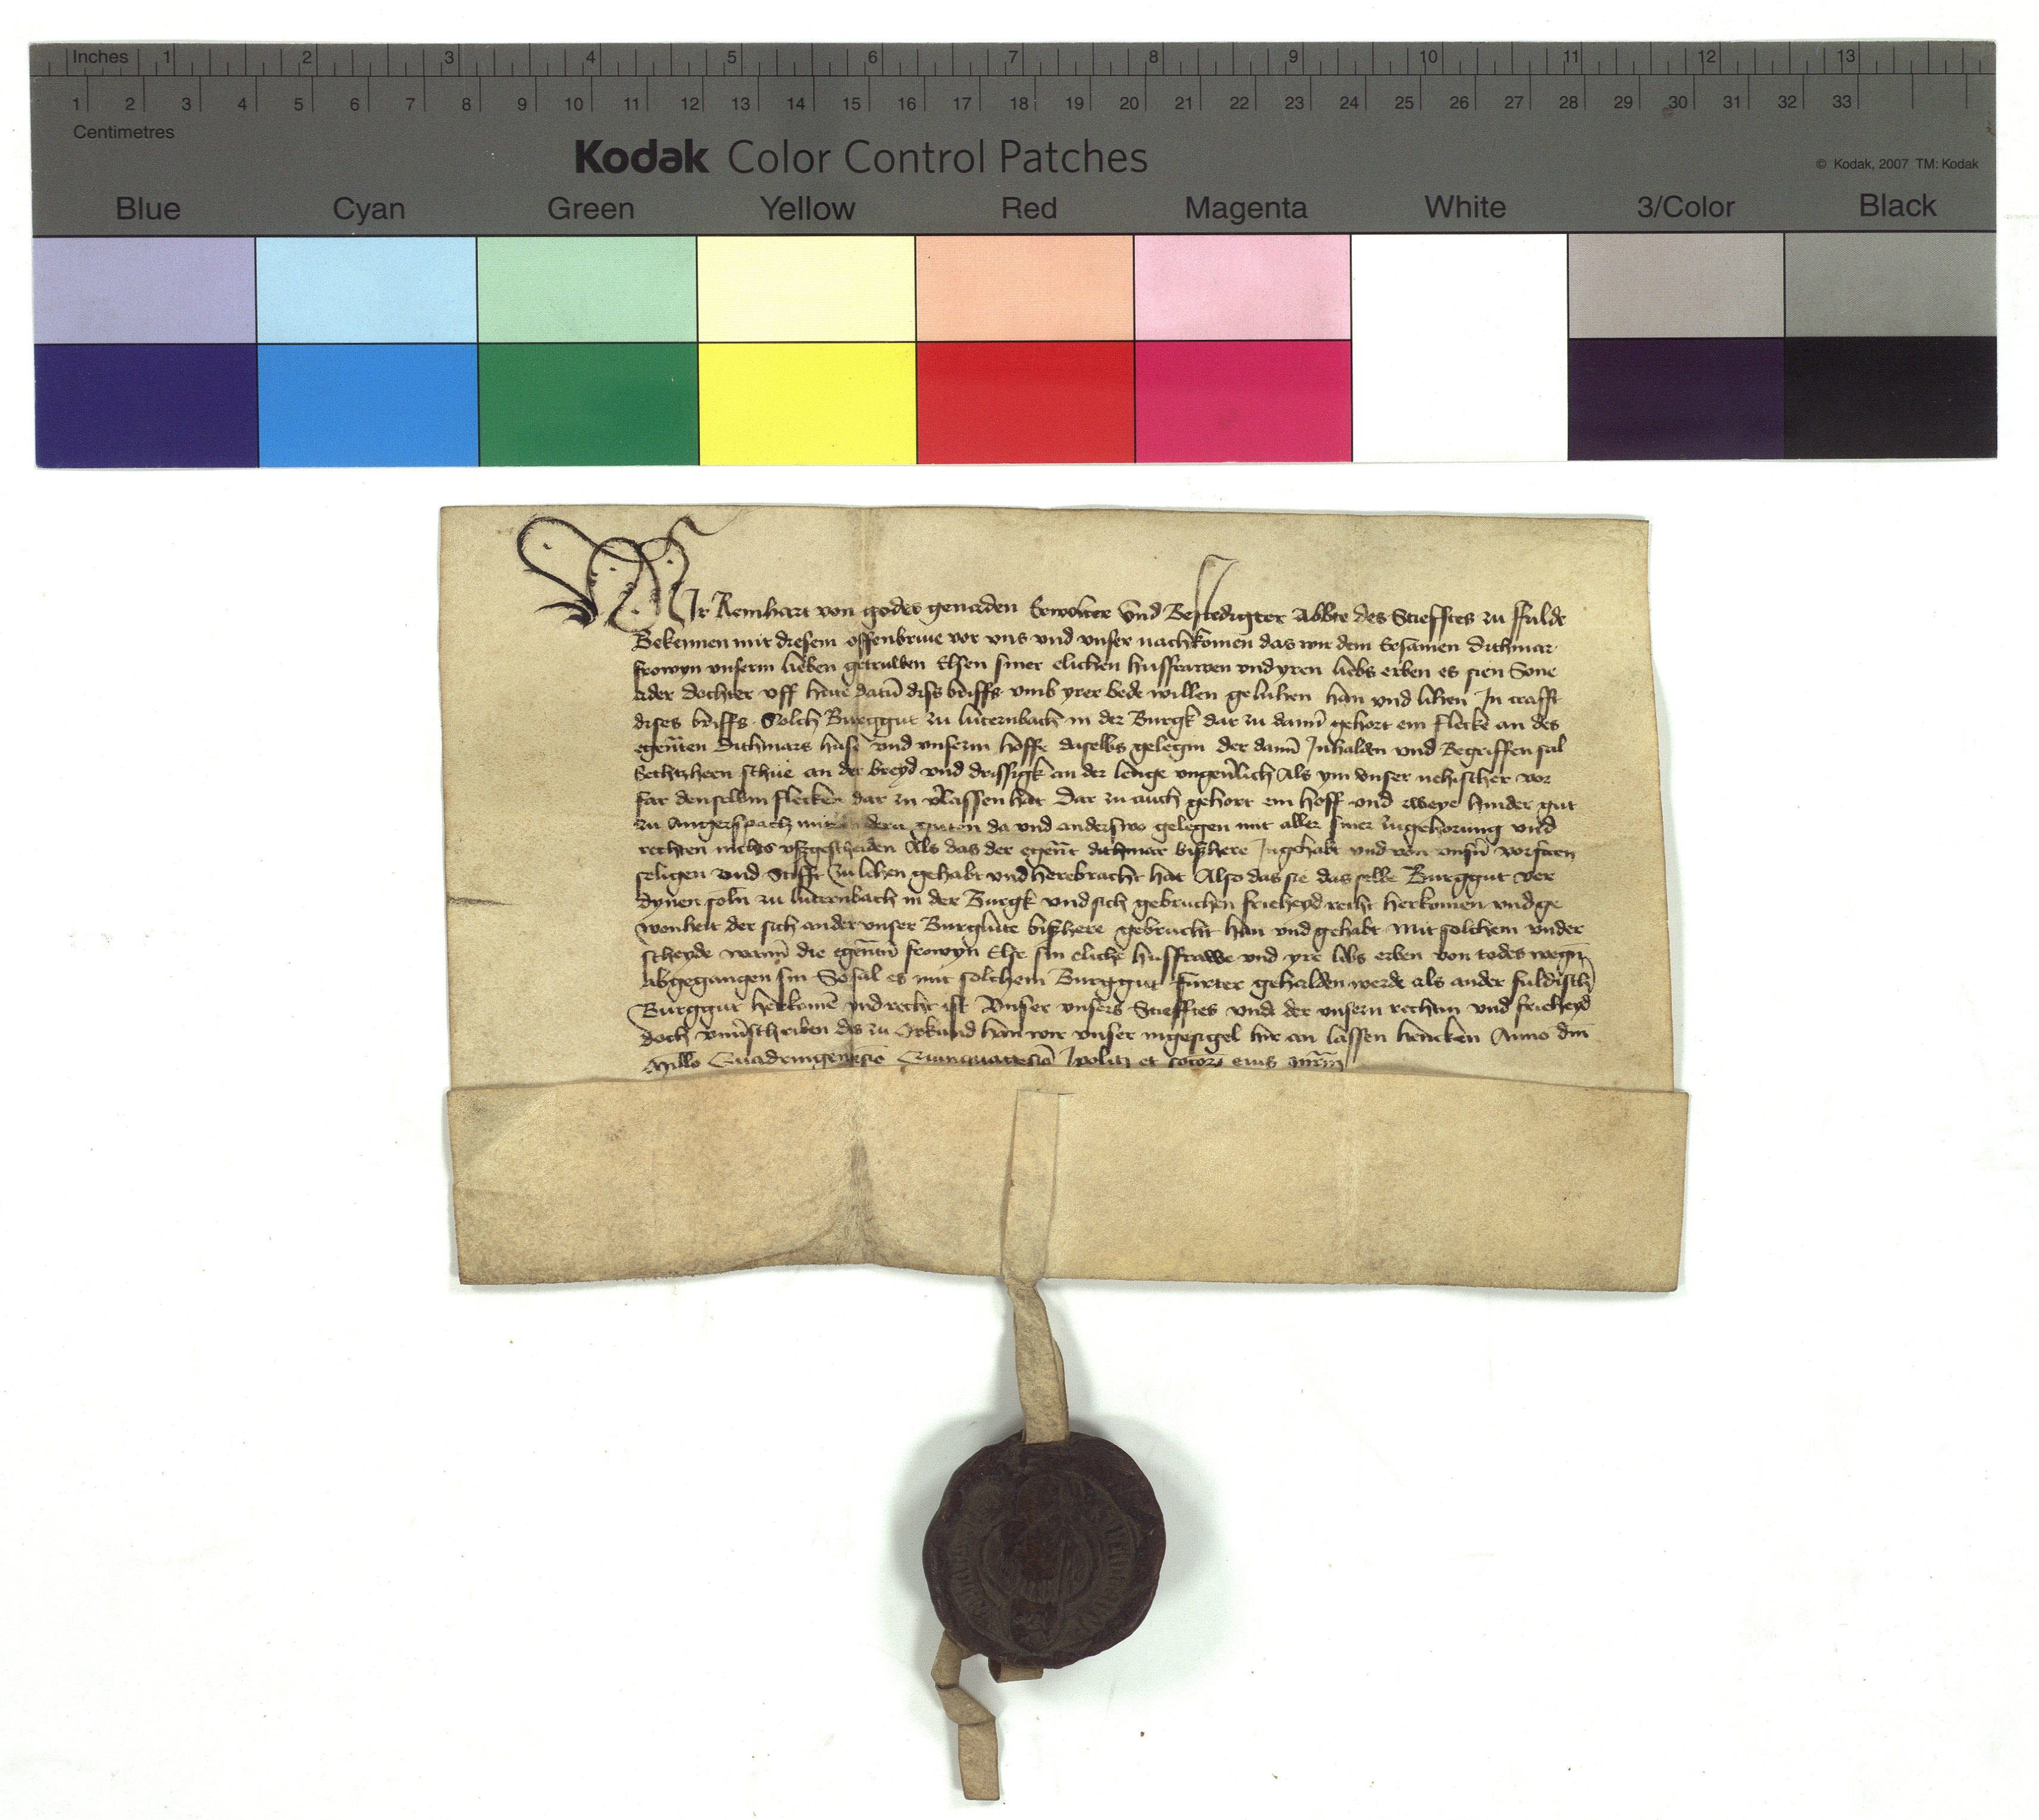 Inches 1 2 3 4 5 6 7 8 9 10 11 12 13
1 2 3 4 5 6 7 8 9 10 11 12 13 14 15 16 17 18 19 20 21 22 23 24 25 26 27 28 29 30 31 32 33
Centimetres
Kodak Color Control Patches
© Kodak, 2007 TM: Kodak
Blue Cyan Green Yellow Red Magenta White 3/Color Black
WIr Reinhart von godes genaden Erwelter vnd Bestedigter Abbte des Stiefftes zu ffulde
Bekennen mit diesem offenbriue vor vns vnd vnser nachkomen das wir dem Ersamen dithmar
frowyn vnserm lieben getruwen Elsen siner elichen husfrawen vnd yren liebs erben es sien Sone
ader dochter vff hute datū diss brieffs vmb yrer bede willen geluhen han vnd lihen In crafft
dises brieffs Solch Burggut zu luternbach in der Burgk dar zu dann gehort ein flecke an des
egenten dithmars huse vnd vnserm hoffe daselbs gelegin der dann Inhalden vnd Begriffen sal
Sechtzheen schue an der breyd vnd drissigk an der lenge vngeu̅lich Als ym vnser nehister vor
far denselbin flecken dar zu v̅lassen hat Dar zu auch gehort ein hoff vnd zweye hinder gut
zu Angerspach mit andern guten da vnd anderswo gelegen mit aller siner zugehorung vnd
rechten nichts vsgescheiden Als das der egent dithmar bishere Ingehabt vnd von vnsn̅ vorfaren
seligen vnd Stifft zu lehen gehabt vnd herebracht hat Also das sie das selbe Burggut ver
dynen soln̅ zu luternbach in der Burgk vnd sich gebruchen friheyd recht herkomen vnd ge
wonheit der sich ander vnser Burglute bishere gebrucht han vnd gehabt Mit solchem vnder
scheyde wann̅ die egentn̅ frowyn Else sin eliche husfrawe vnd yre libs erben von todes wegn̅
abgegangen sin So sal es mit solchem Burggut furter gehalden werde als ander fuldisch
Burggut herkomē vnd recht ist Vnser vnsers Stiefftes vnd der vnsern rechtin vnd friheyd
doch vnu̅schriben des zu Orkund han wir vnser ingesigel her an lassen hencken Anno dm̅
Millo Quadringentesīo Ipoliti et socorȝ eius mr̅m